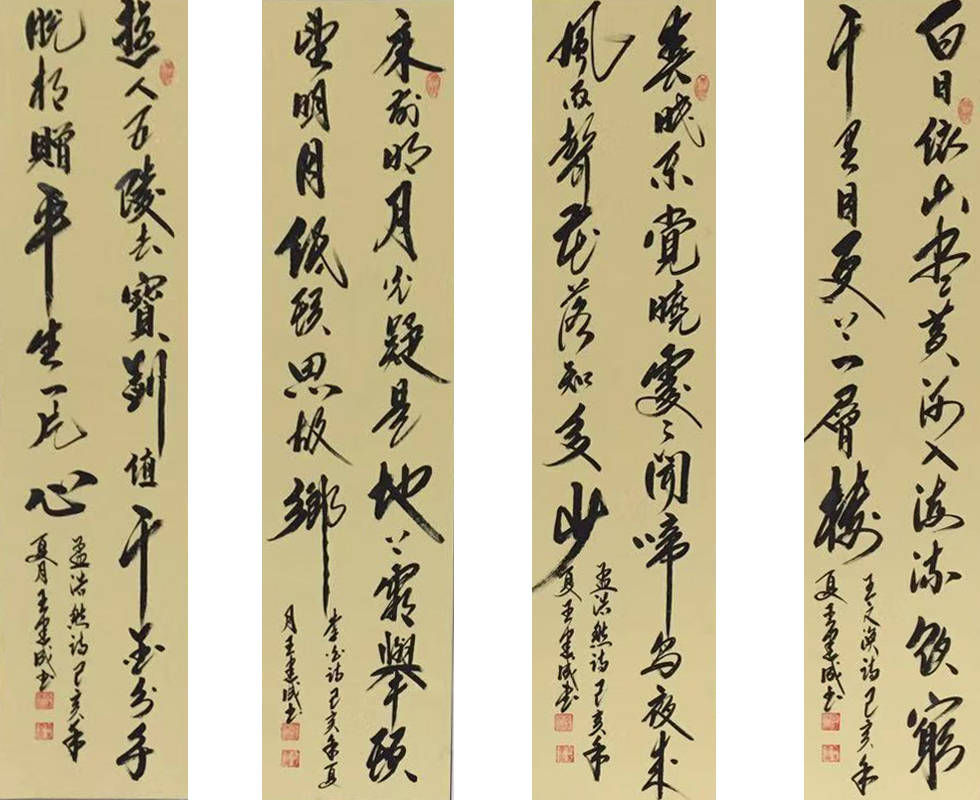 白日依山尽黄河入海流欲窮
千里目更上一層楼
王之涣诗己亥年
夏王成书
春眠不覺曉處々聞啼鸟夜来
風雨聲花落知多少
孟浩然诗己亥年
夏王成书
床前明月光疑是地上霜舉头
望明月低头思故鄉
李白诗己亥年夏
月王成书
遊人五陵去寶劍值千金分手
脱相贈平生一片心
孟浩然诗己亥年
夏月王成书